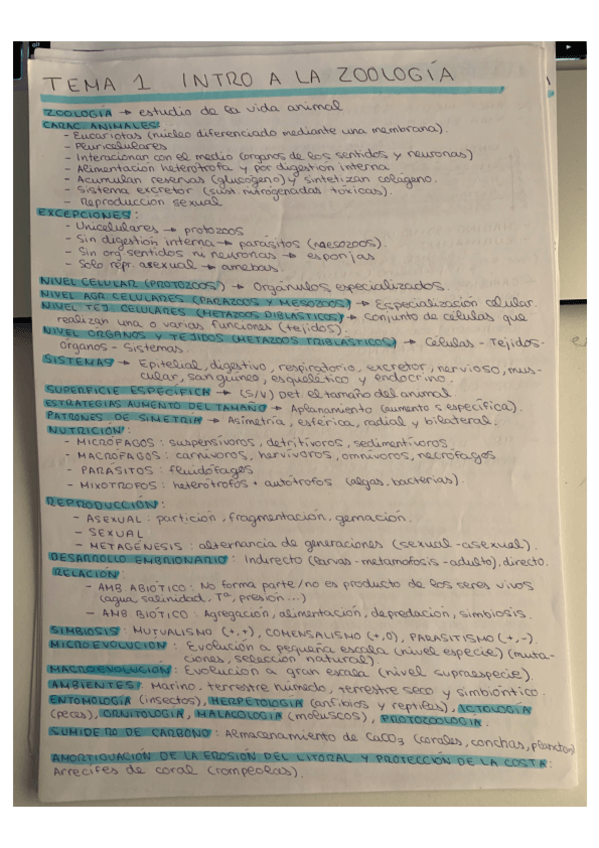 TEMA 1 INTRO A LA ZOOLOGÍA
ZOOLOGÍA → estudio de la vida animal
CARAC. ANIMALES:
- Eucariotas (núcleo diferenciado mediante una membrana).
- Pluricelulares
- Interacionan con el medio (órganos de los sentidos y neuronas)
- Alimentación heterótrofa y por digestión interna
- Acumulan reservas (glucógeno) y sintetizan colágeno.
- Sistema excretor (sust. nitrogenadas tóxicas).
- Reproducción sexual
EXCEPCIONES:
- Unicelulares → protozoos
- Sin digestión interna → parásitos (mesozoos).
- Sin org. sentidos ni neuronas → esponjas
- Solo repr. asexual → amebas.
NIVEL CELULAR (PROTOZOOS) → Orgánulos especializados.
NIVEL AGR. CELULARES (PARAZOOS Y MESOZOOS) → Especialización celular.
NIVEL TEJ. CELULARES (METAZOOS DIBLÁSTICOS) → Conjunto de células que
realizan una o varias funciones (tejidos).
NIVEL ÓRGANOS Y TEJIDOS (METAZOOS TRIBLÁSTICOS) → Células - Tejidos-
Órganos - Sistemas.
SISTEMAS → Epitelial, digestivo, respiratorio, excretor, nervioso, mus-
cular, sanguíneo, esquelético y endocrino.
SUPERFICIE ESPECÍFICA → (S/V) Det. el tamaño del animal
ESTRATEGIAS AUMENTO DEL TAMAÑO → Aplanamiento (aumento s específica).
PATRONES DE SIMETRÍA → Asimetría, esférica, radial y bilateral.
NUTRICIÓN:
- MICRÓFAGOS: suspensívoros, detritívoros, sedimentívoros
- MACRÓFAGOS: carnívoros, hervívoros, omnívoros, necrófagos
- PARÁSITOS: fluidófagos
- MIXOTROFOS: heterótrofos + autótrofos (algas, bacterias).
REPRODUCCIÓN:
- ASEXUAL: partición, fragmentación, gemación.
- SEXUAL
- METAGÉNESIS: alternancia de generaciones (sexual-asexual).
DESARROLLO EMBRIONARIO: Indirecto (larvas-metamofosis-adulto), directo.
RELACIÓN:
- AMB ABIÓTICO: No forma parte/no es producto de los seres vivos
(agua, salinidad, Tª, presión...)
- AMB BIÓTICO: Agregación, alimentación, depredación, simbiosis.
SIMBIOSIS: MUTUALISMO (+,+), COMENSALISMO (+,0), PARASITISMO (+,-).
MICROEVOLUCIÓN: Evolución a pequeña escala (nivel especie) (muta-
ciones, selección natural).
MACROEVOLUCIÓN: Evolución a gran escala (nivel supraespecie).
AMBIENTES: Marino, terrestre húmedo, terrestre seco y simbióntico.
ENTOMOLOGÍA (insectos), HERPETOLOGÍA (anfibios y reptiles), ICTIOLOGÍA
(peces), ORNITOLOGÍA, MALACOLOGÍA (moluscos), PROTOZOOLOGÍA.
SUMIDERO DE CARBONO: Almacenamiento de CaCO3 (corales, conchas, plancton)
AMORTIGUACIÓN DE LA EROSIÓN DEL LITORAL Y PROTECCIÓN DE LA COSTA:
Arrecifes de coral (rompeolas).